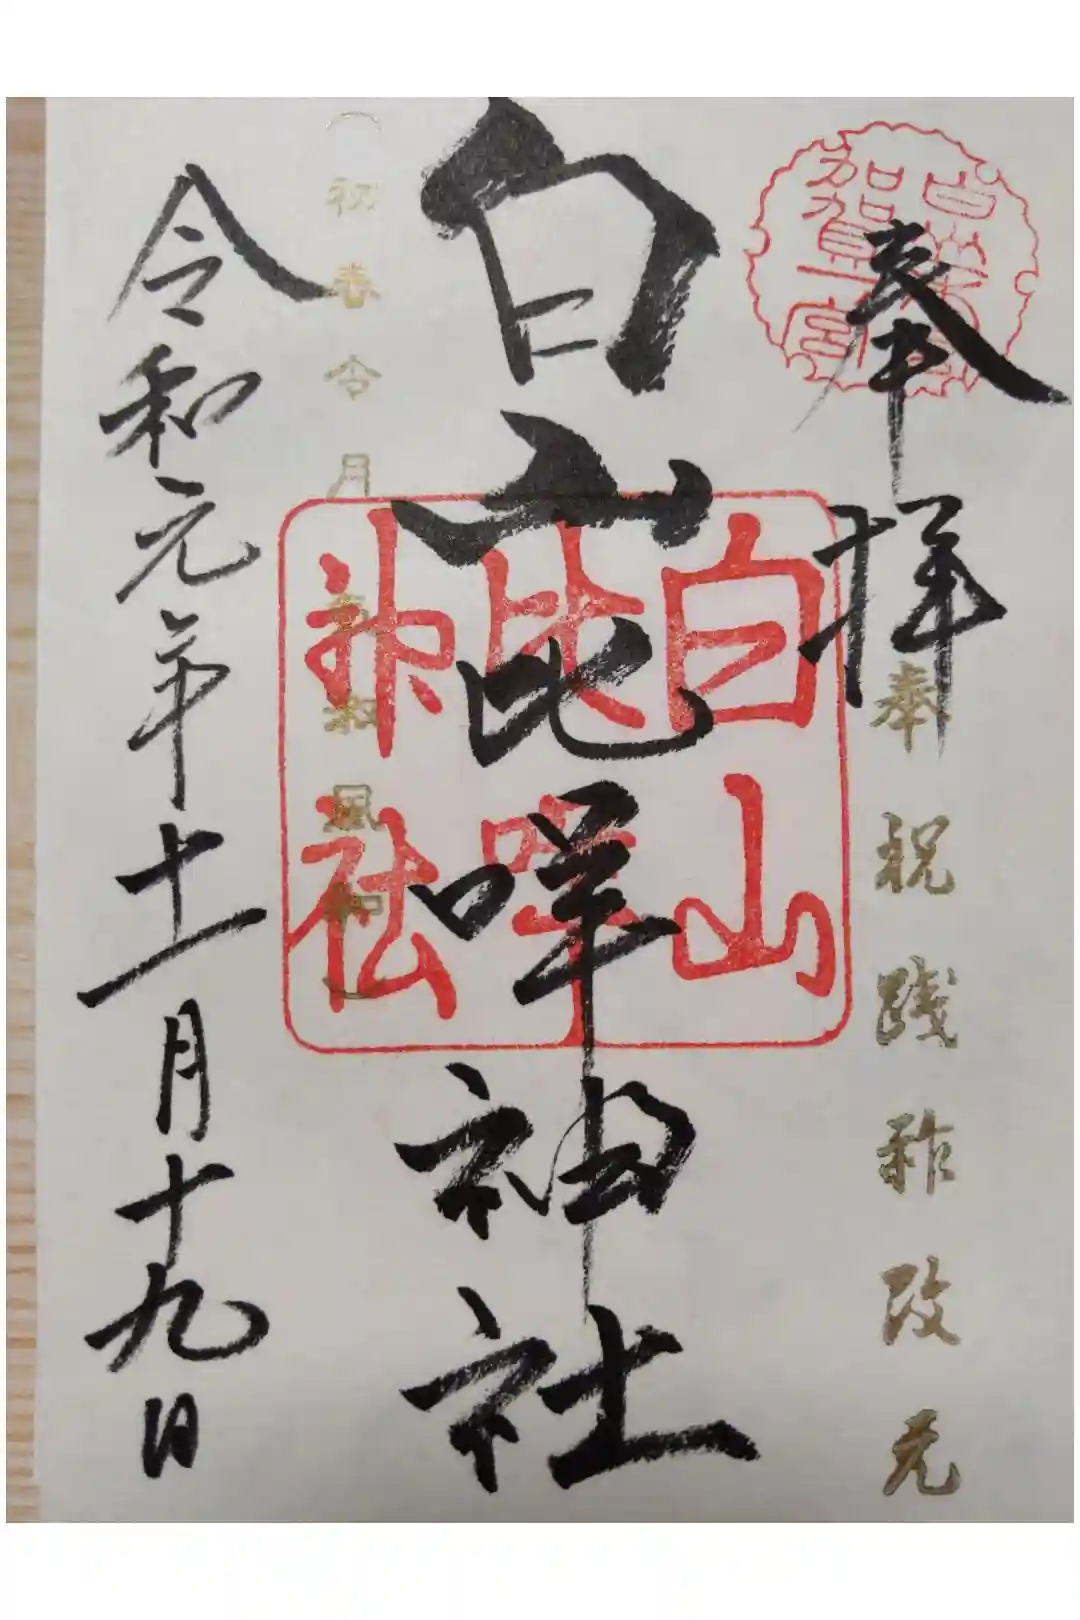 奉拝
加賀一宮
奉祝践祚改元
白山比咩神社
白山
比咩
神社
（初春令月 氣淑風和）
令和元年十一月十九日